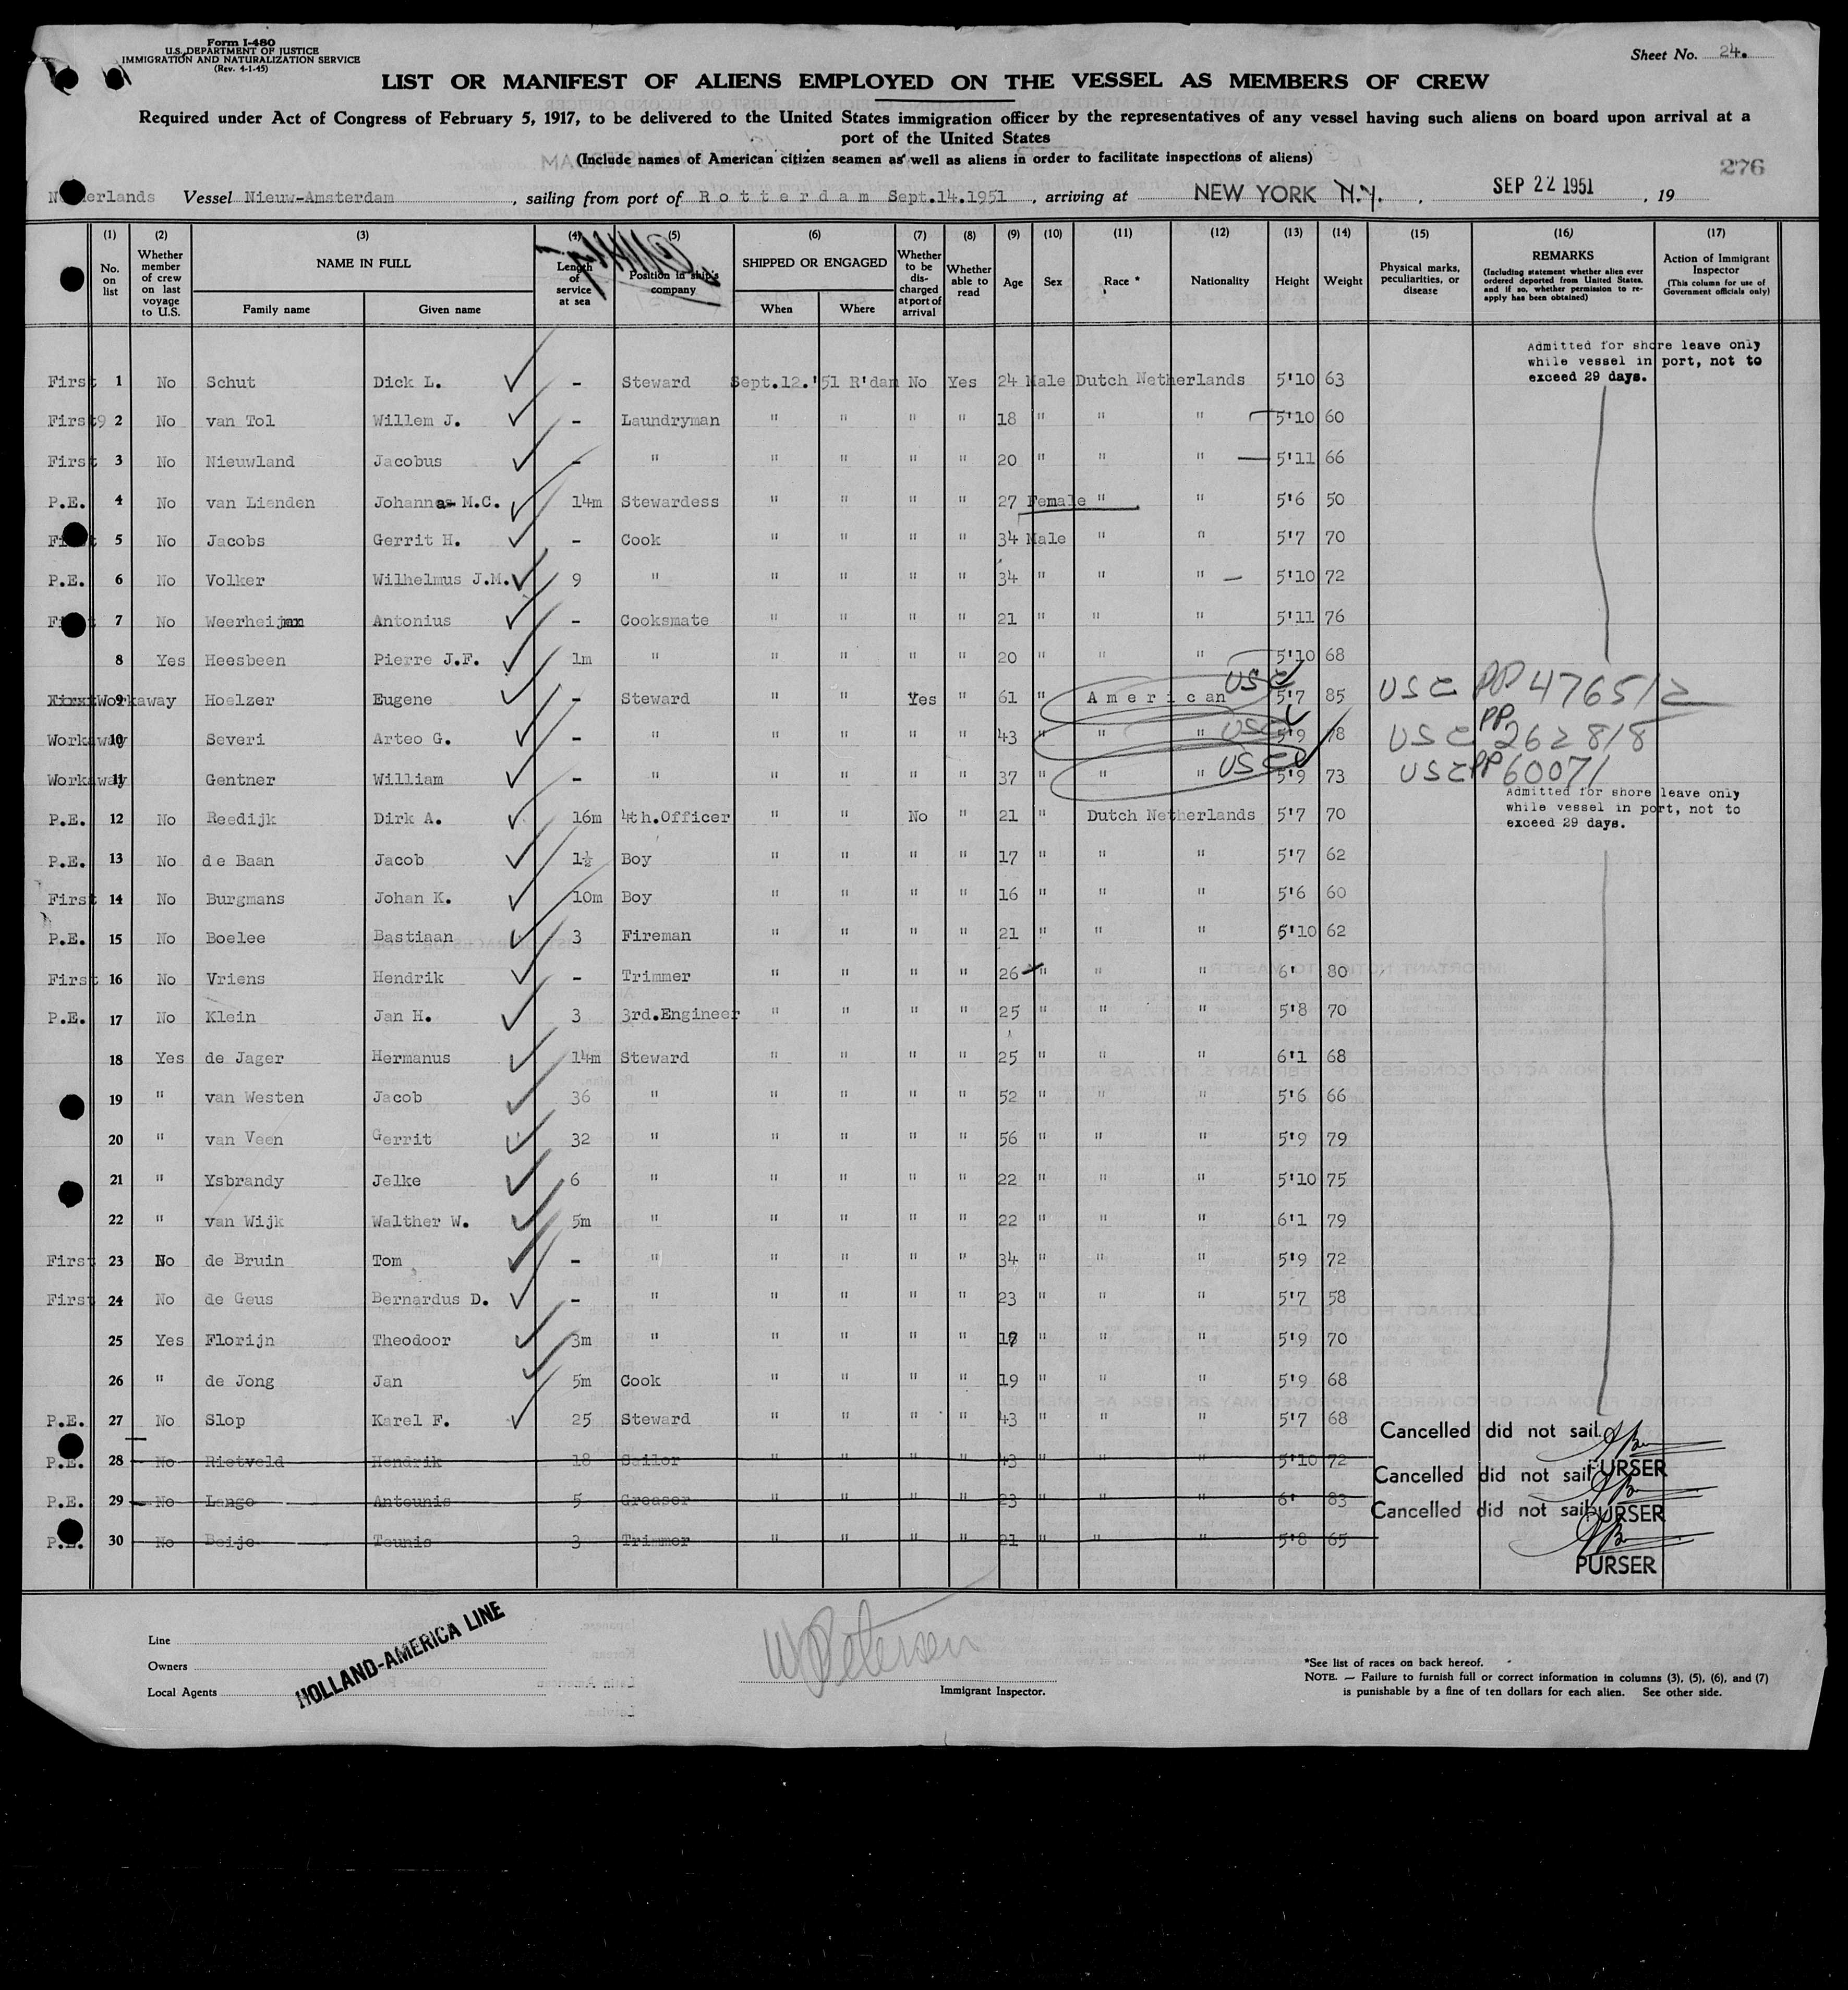 Form I-480
U.S. DEPARTMENT OF JUSTICE
IMMIGRATION AND NATURALIZATION SERVICE
(Rev. 4-1-45)
Sheet No. 24.
LIST OR MANIFEST OF ALIENS EMPLOYED ON THE VESSEL AS MEMBERS OF CREW
Required under Act of Congress of February 5, 1917, to be delivered to the United States immigration officer by the representatives of any vessel having such aliens on board upon arrival at a
port of the United States
(Include names of American citizen seamen as well as aliens in order to facilitate inspections of aliens)
276
Vessel Nieuw-Amsterdam, sailing from port of Rotterdam Sept.14.1951, arriving at NEW YORK N.Y., SEP 22 1951, 19
(1) (2) (3) (4) (5) (6) (7) (8) (9) (10) (11) (12) (13) (14) (15) (16) (17)
No. on list
Whether member of crew on last voyage to U.S.
NAME IN FULL
Family name
Given name
Length of service at sea
Position in ship's company
SHIPPED OR ENGAGED
When
Where
Whether to be discharged at port of arrival
Whether able to read
Age
Sex
Race *
Nationality
Height
Weight
Physical marks, peculiarities, or disease
REMARKS
(Including statement whether alien ever ordered deported from United States, and if so, whether permission to re-apply has been obtained)
Action of Immigrant Inspector
(This column for use of Government officials only)
Admitted for shore leave only
while vessel in port, not to
exceed 29 days.
First 1 No Schut Dick L. - Steward Sept.12.'51 R'dam No Yes 24 Male Dutch Netherlands 5'10 63
First 2 No van Tol Willem J. - Laundryman " " " " 18 " " " 5'10 60
First 3 No Nieuwland Jacobus - " " " " " 20 " " " 5'11 66
P.E. 4 No van Lienden Johanna M.C. 14m Stewardess " " " " 27 Female " " 5'6 50
First 5 No Jacobs Gerrit H. - Cook " " " " 34 Male " " 5'7 70
P.E. 6 No Volker Wilhelmus J.M. 9 " " " " " 34 " " " 5'10 72
7 No Weerheijm Antonius - Cooksmate " " " " 21 " " " 5'11 76
8 Yes Heesbeen Pierre J.F. 1m " " " " " 20 " " " 5'10 68
Workaway 9 Hoelzer Eugene - Steward " " Yes " 61 " American USC 5'7 85 USC PP 476512
Workaway 10 Severi Arteo G. - " " " " " 43 " " " USC 5'9 78 USC PP 262818
Workaway 11 Gentner William - " " " " " 37 " " " USC 5'9 73 USC PP 60071
Admitted for shore leave only
while vessel in port, not to
exceed 29 days.
P.E. 12 No Reedijk Dirk A. 16m 4th.Officer " " No " 21 " Dutch Netherlands 5'7 70
P.E. 13 No de Baan Jacob 1½ Boy " " " " 17 " " " 5'7 62
First 14 No Burgmans Johan K. 10m Boy " " " " 16 " " " 5'6 60
P.E. 15 No Boelee Bastiaan 3 Fireman " " " " 21 " " " 5'10 62
First 16 No Vriens Hendrik - Trimmer " " " " 26 " " " 6' 80
P.E. 17 No Klein Jan H. 3 3rd.Engineer " " " " 25 " " " 5'8 70
18 Yes de Jager Hermanus 14m Steward " " " " 25 " " " 6'1 68
19 " van Westen Jacob 36 " " " " " 52 " " " 5'6 66
20 " van Veen Gerrit 32 " " " " " 56 " " " 5'9 79
21 " Ysbrandy Jelke 6 " " " " " 22 " " " 5'10 75
22 " van Wijk Walther W. 5m " " " " " 22 " " " 6'1 79
First 23 No de Bruin Tom - " " " " " 34 " " " 5'9 72
First 24 No de Geus Bernardus D. - " " " " " 23 " " " 5'7 58
25 Yes Florijn Theodoor 3m " " " " " " " " 5'9 70
26 " de Jong Jan 5m Cook " " " " 19 " " " 5'9 68
P.E. 27 No Slop Karel F. 25 Steward " " " " 43 " " " 5'7 68
Cancelled did not sail.
P.E. 28 No Rietveld Hendrik 18 Sailor " " " " 43 " " " 5'10 72
PURSER
Cancelled did not sail
P.E. 29 No Lange Anteunis 5 Greaser " " " " 23 " " " 6' 83
PURSER
Cancelled did not sail
P.E. 30 No Beije Teunis 3 Trimmer " " " " 21 " " " 5'8 65
PURSER
Line
Owners
Local Agents
HOLLAND-AMERICA LINE
W Petersen
Immigrant Inspector.
*See list of races on back hereof.
NOTE. — Failure to furnish full or correct information in columns (3), (5), (6), and (7)
is punishable by a fine of ten dollars for each alien. See other side.